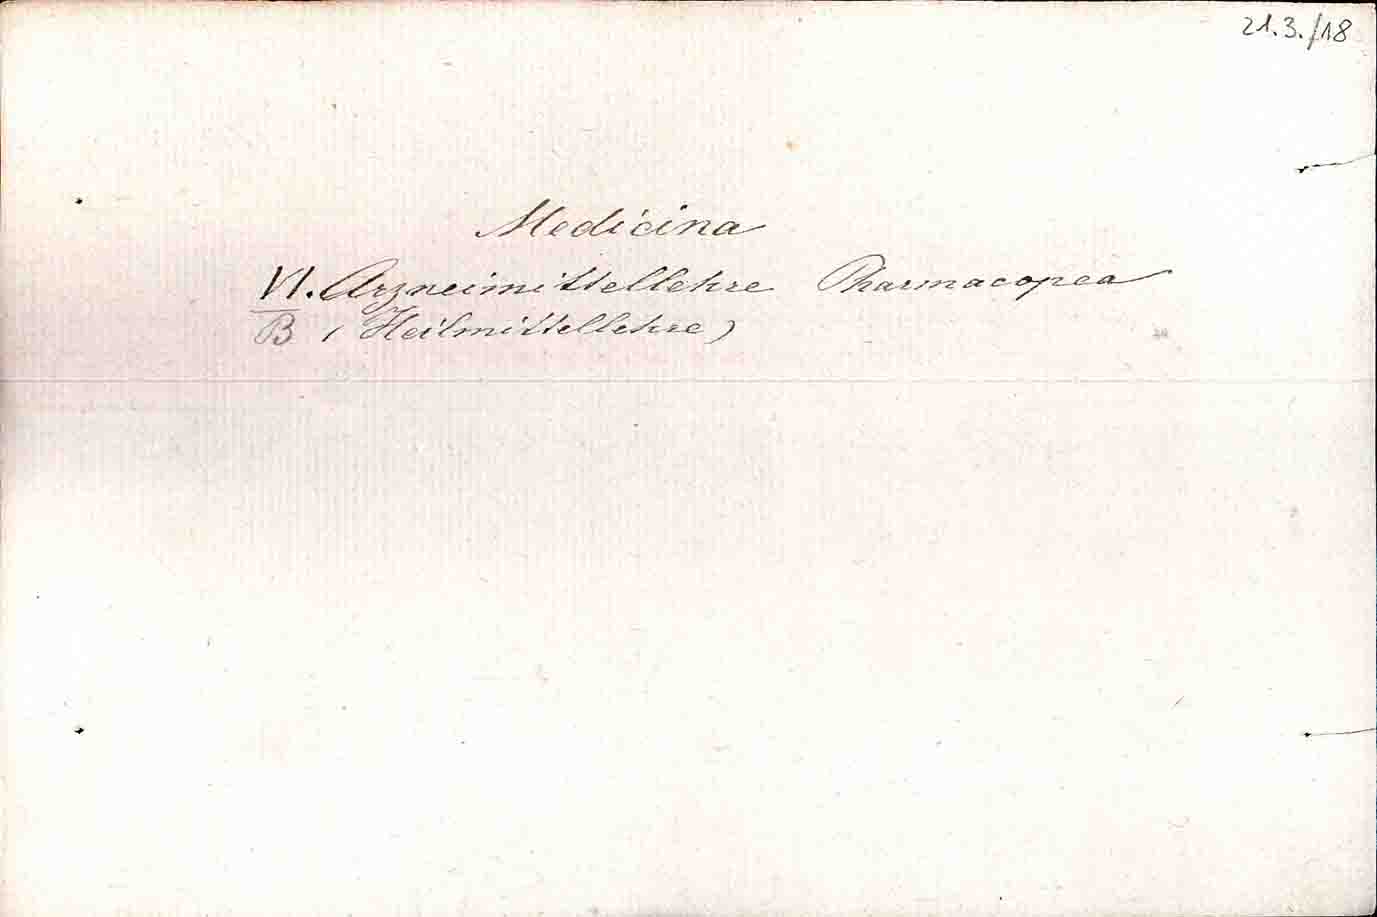 21.3./18
Medicina
VI. Arzneimittellehre Pharmacopea
B (Heilmittellehre)